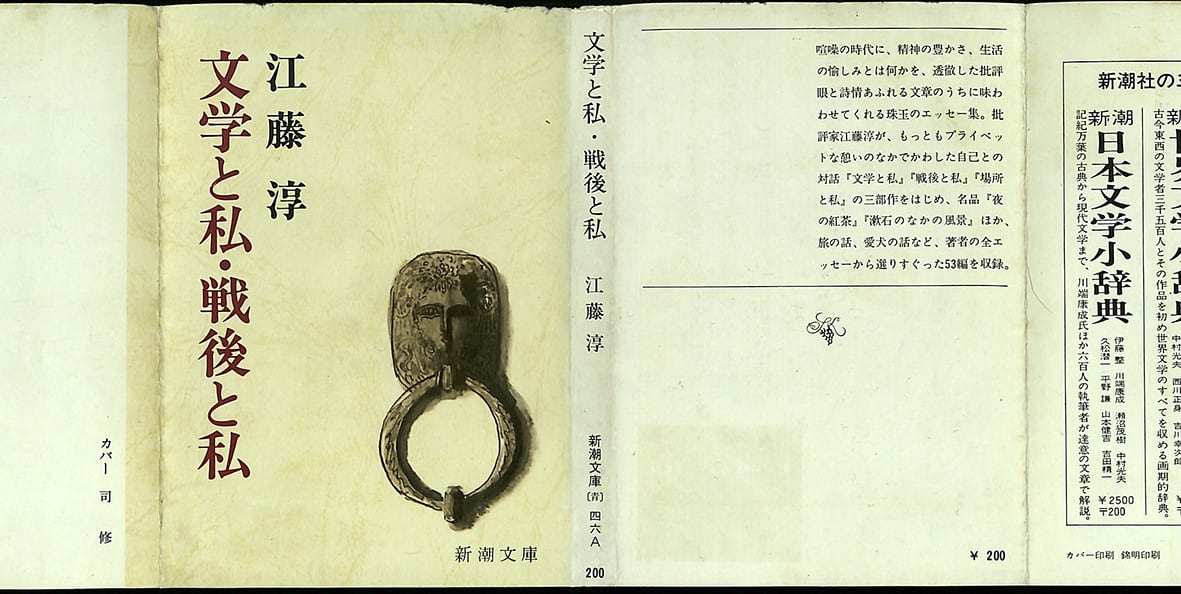 カバー 司 修
江藤 淳
文学と私・戦後と私
新潮文庫
文学と私・戦後と私 江藤 淳 新潮文庫〔青〕 四六A
200
喧噪の時代に、精神の豊かさ、生活
の愉しみとは何かを、透徹した批評
眼と詩情あふれる文章のうちに味わ
わせてくれる珠玉のエッセー集。批
評家江藤淳が、もっともプライベッ
トな憩いのなかでかわした自己との
対話『文学と私』『戦後と私』『場所
と私』の三部作をはじめ、名品『夜
の紅茶』『漱石のなかの風景』ほか、
旅の話、愛犬の話など、著者の全エ
ッセーから選りすぐった53編を収録。
¥ 200
新潮社の
古今東西の文学者三千五百人とその作品を初め世界文学のすべてを収める画期的辞典。
中村光夫 西川正身 吉川幸次郎
新潮
日本文学小辞典
伊藤 整 川端康成 瀬沼茂樹 中村光夫
久松潜一 平野 謙 山本健吉 吉田精一
¥2500
〒200
記紀万葉の古典から現代文学まで、川端康成氏ほか六百人の執筆者が達意の文章で解説。
カバー印刷 錦明印刷